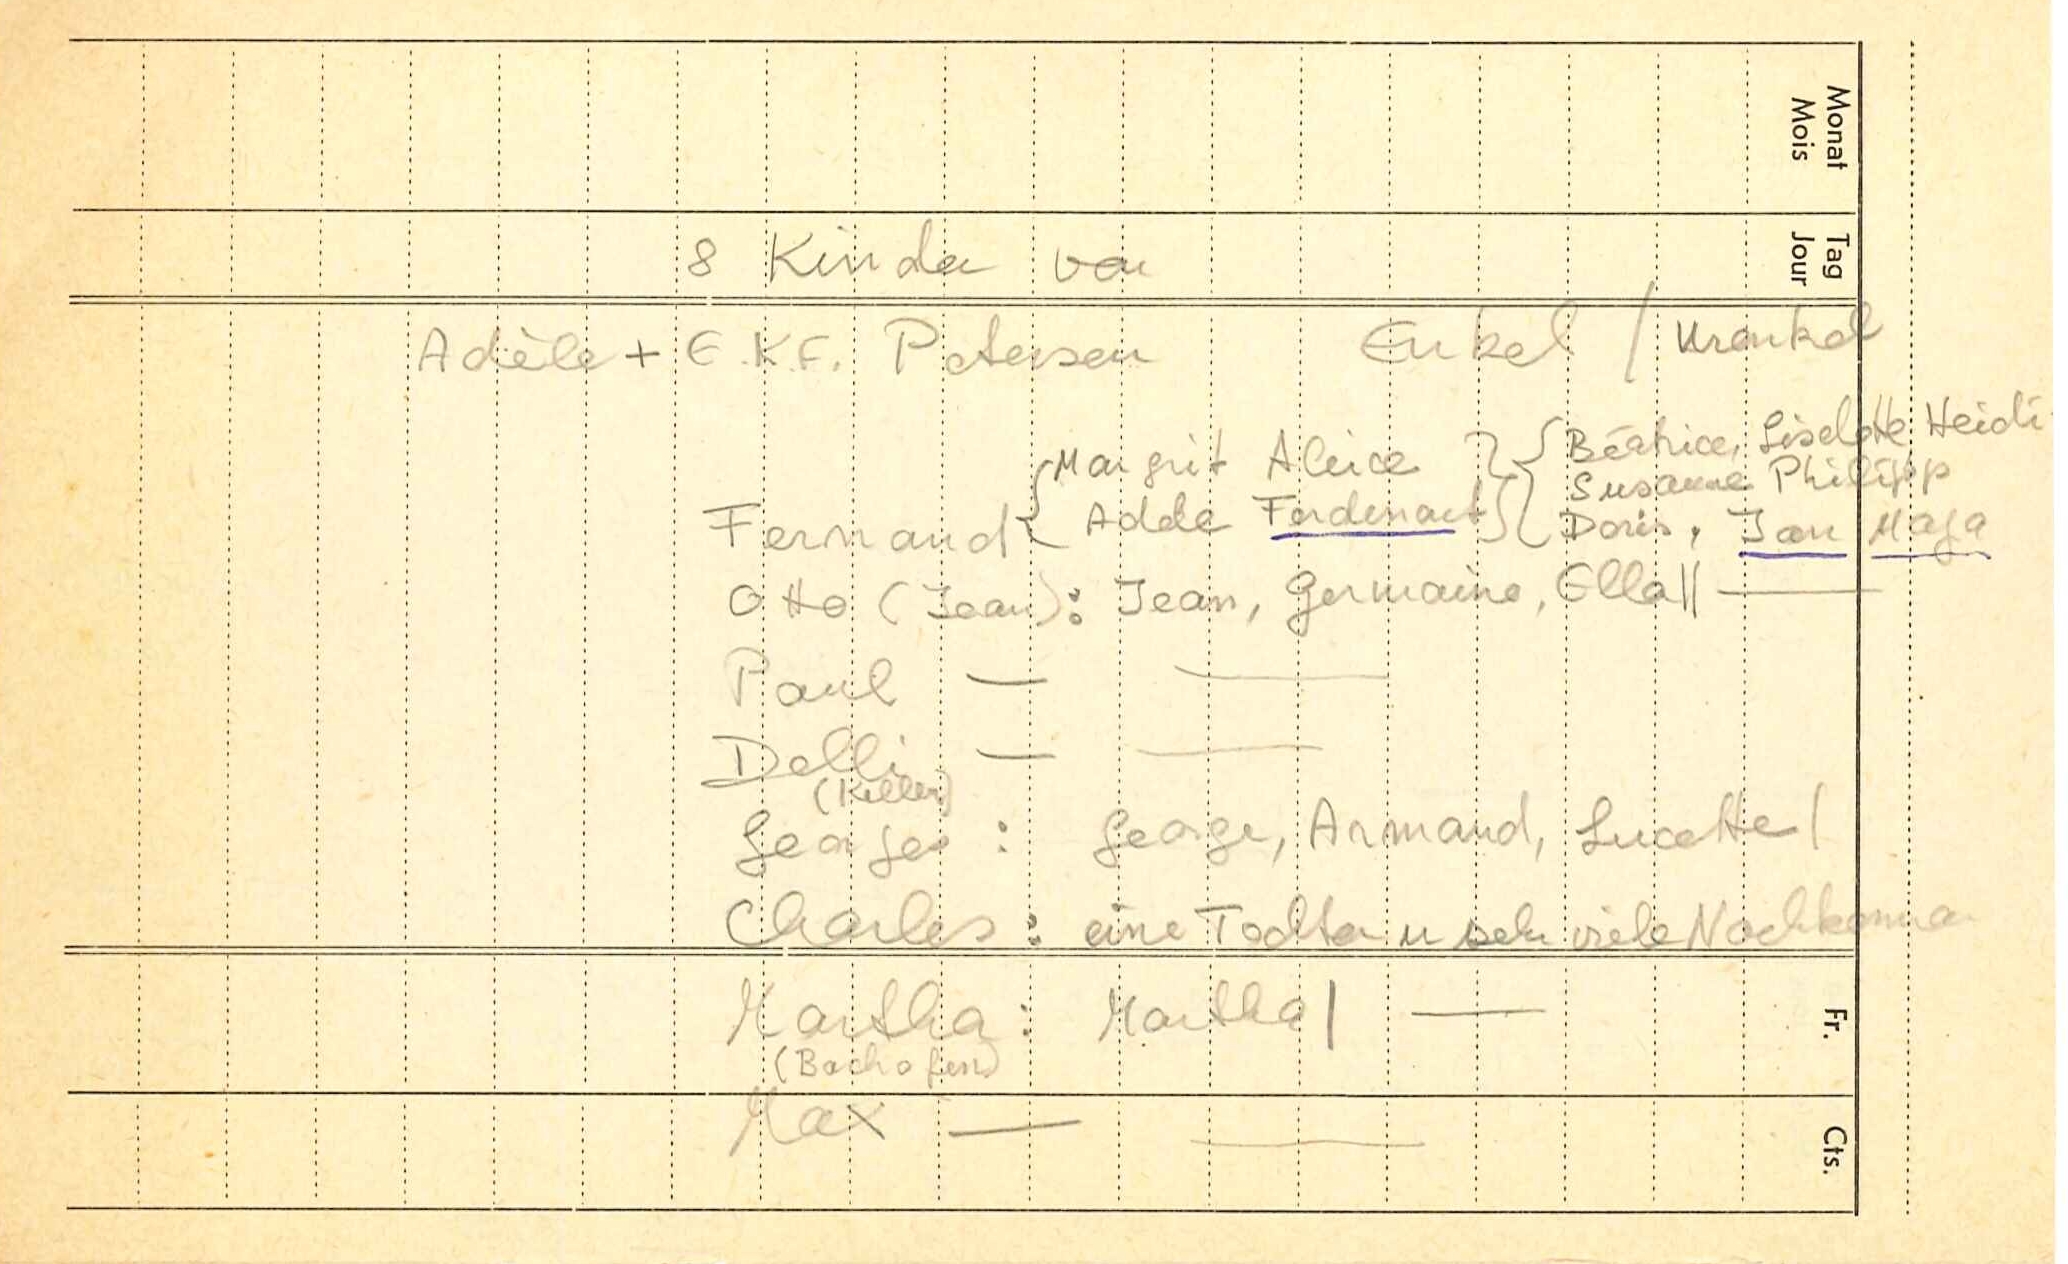 Monat
Mois
Tag
Jour
8 Kinder von
Adèle + E.K.F. Petersen Enkel / Urenkel
Margrit Alice } { Béatrice, Liselotte Heidi
Susanne Philipp
Fernand { Adèle Ferdinand Doris, Jan Maja
Otto (Jean): Jean, Germaine, Ella || —
Paul — —
Delli — —
(Keller)
Georges : George, Armand, Lucette |
Charles : eine Tochter u sehr viele Nachkommen
Martha : Martha | —
(Bachofen)
Max — —
Fr.
Cts.